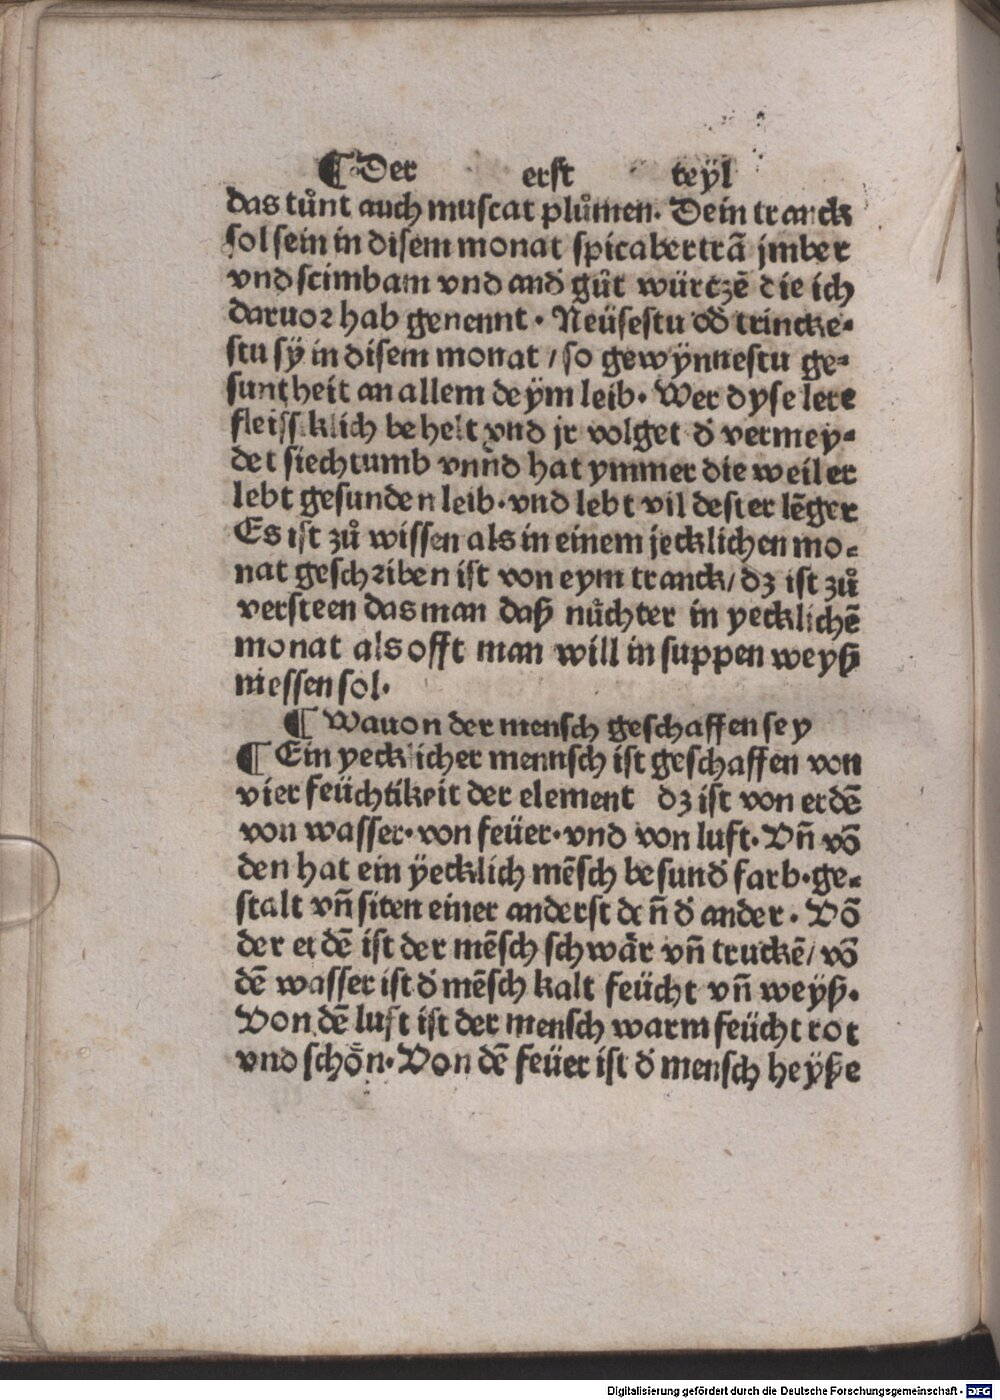 ¶ Der erst teÿl
das tůnt auch muscat plůmen. Dein tranck
sol sein in disem monat spicabertrã jmber
vnd scimbam vnd and̕ gůt würtzẽ die ich
daruoꝛ hab genennt. Neüsestu od̕ trincke⸗
stu sÿ in disem monat / so gewÿnnestu ge⸗
suntheit an allem deÿm leib. Wer dyse lere
fleissklich behelt vnd jr volget d̕ vermey⸗
det siechtumb vnnd hat ymmer die weil er
lebt gesunden leib. vnd lebt vil dester lẽger
Es ist zů wissen als in einem jecklichen mo⸗
nat geschꝛiben ist von eym tranck / dz ist zů
versteen das man daß nůchter in yecklichẽ
monat als offt man will in suppen weyß
niessen sol.
¶ Wauon der mensch geschaffen sey
¶ Ein yecklicher mennsch ist geschaffen von
vier feüchtikeit der element dz ist von erdẽ
von wasser. von feüer. vnd von luft. Vñ võ
den hat ein ÿecklich mẽsch besund̕ farb. ge⸗
stalt vñ siten einer anderst deñ d̕ ander. Võ
der erdẽ ist der mẽsch schwår vñ truckẽ / võ
dẽ wasser ist d̕ mẽsch kalt feücht vñ weÿß.
Von dẽ luft ist der mensch warm feücht rot
vnd schoͤn. Von dẽ feüer ist d̕ mensch heÿße
Digitalisierung gefördert durch die Deutsche Forschungsgemeinschaft - DFG